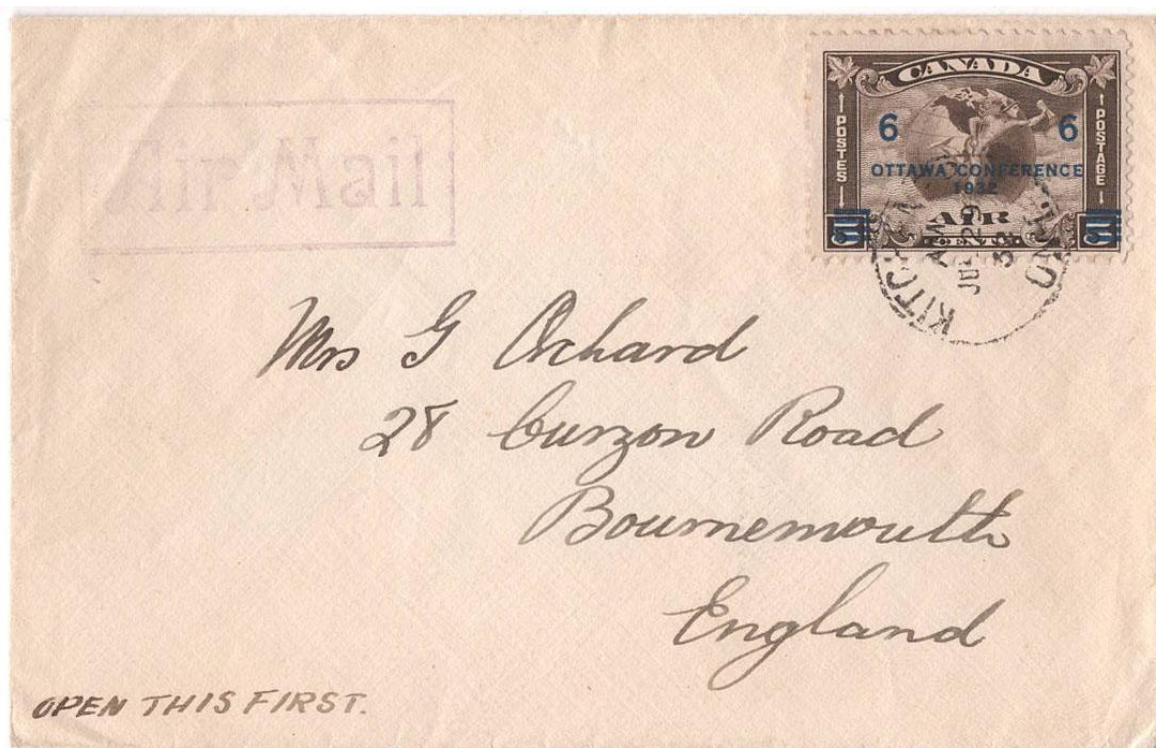 Air Mail
CANADA
POSTES
POSTAGE
6 6
OTTAWA CONFERENCE
1932
AIR
CENTS
AM
29
32
ONT
Mrs G Orchard
28 Curzon Road
Bournemouth
England
OPEN THIS FIRST.